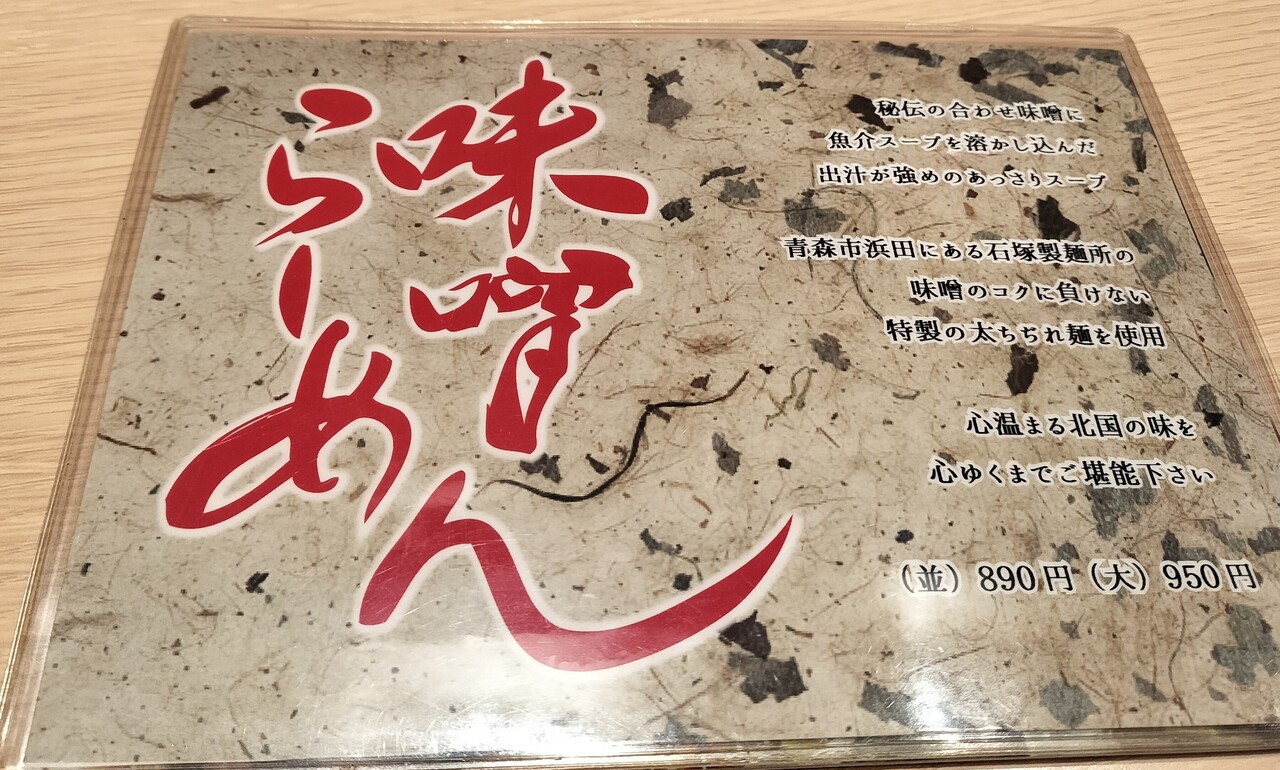 味噌
らーめん
秘伝の合わせ味噌に
魚介スープを溶かし込んだ
出汁が強めのあっさりスープ
青森市浜田にある石塚製麺所の
味噌のコクに負けない
特製の太ちぢれ麺を使用
心温まる北国の味を
心ゆくまでご堪能下さい
（並）890円（大）950円